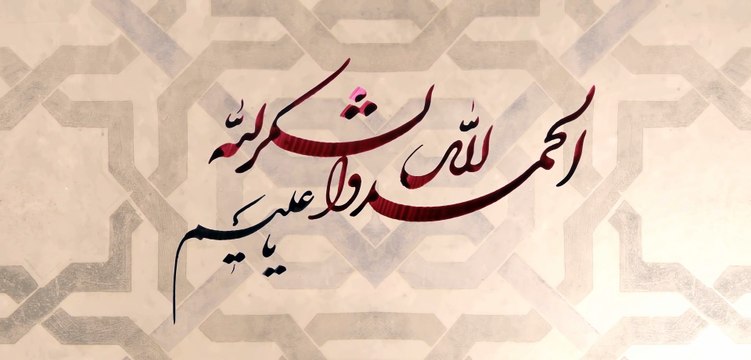 الحمد لله والشكر لله
يا عليم